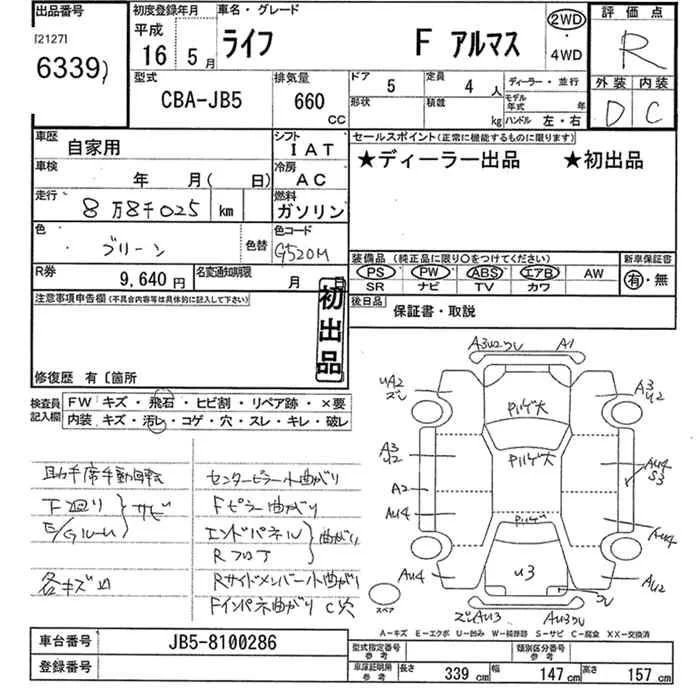 出品番号 初度登録年月 車名・グレード 2WD 評価点
[2127] 平成
6339) 16年 5月 ライフ F アルマス ・4WD R
型式 排気量 ドア 定員 ディーラー・並行 外装 内装
CBA-JB5 660 CC 5 4人 モデル年式 年 D C
形状 積載 kg ハンドル 左・右
車歴 自家用 シフト IAT セールスポイント(正常に機能するものに限ります)
車検 年 月( 日) 冷房 AC ★ディーラー出品 ★初出品
走行 8万8千025 km 燃料 ガソリン
色 グリーン 色替 色コード G520M
装備品(純正品に限り○をつけてください) 新車保証書
PS PW ABS エアB AW 有・無
SR ナビ TV カワ
R券 9,640円 名変通知期限 月 日
注意事項申告欄(不具合内容等は具体的に記入して下さい) 後日品 保証書・取説
初出品
修復歴 有〔箇所
検査員記入欄 FW キズ・飛石・ヒビ割・リペア跡・×要
内装 キズ・汚レ・コゲ・穴・スレ・キレ・破レ
助手席手動回転 センターピラー小曲がり
下廻り Fピラー曲がり
E/Gルーム サビ エンドパネル
Rフロア 曲がり
各キズ凹 Rサイドメンバー小曲がり
Fインパネ曲がり C穴
A3U2ズレ A1
UA2 ズレ パルゲ大 A3 U2
A3 U2 パルゲ大 A4 S3
A2
AU4 パルゲ AU4
AU4 U3 AU2
スペア ズレAU3 AU3ズレ ズレ
A−キズ E−エクボ U−凹み W−補修跡 S−サビ C−腐食 XX−交換済
車台番号 JB5-8100286 型式指定番号 参考 類別区分番号 参考
登録番号 車庫証明用 参考 長さ 339 cm 幅 147 cm 高さ 157 cm